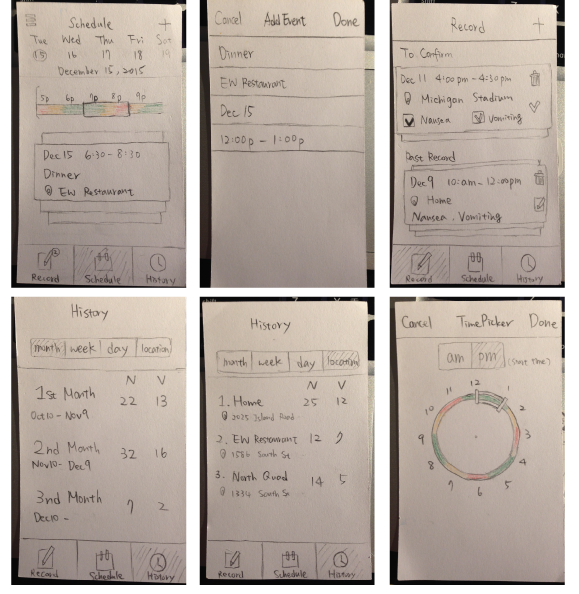 Schedule +
Tue Wed Thu Fri Sat
15 16 17 18 19
December 15, 2015
5p 6p 7p 8p 9p
Dec 15 6:30 - 8:30
Dinner
EW Restaurant
Record Schedule History
Cancel Add Event Done
Dinner
EW Restaurant
Dec 15
12:00p - 1:00p
Record +
To Confirm
Dec 11 4:00pm - 4:30pm
Michigan Stadium
Nausea Vomiting
Past Record
Dec 9 10:am - 12:00pm
Home
Nausea, Vomiting
Record Schedule History
History
month week day location
N V
1st Month 22 13
Oct10 - Nov9
2nd Month 32 16
Nov10 - Dec9
3rd Month 7 2
Dec10 -
Record Schedule History
History
month week day location
N V
1. Home 25 12
2025 Island Road
2. EW Restaurant 12 7
1586 South St
3. North Quad 14 5
1334 South St
Record Schedule History
Cancel TimePicker Done
am pm (Start Time)
12 1 2 3 4 5 6 7 8 9 10 11